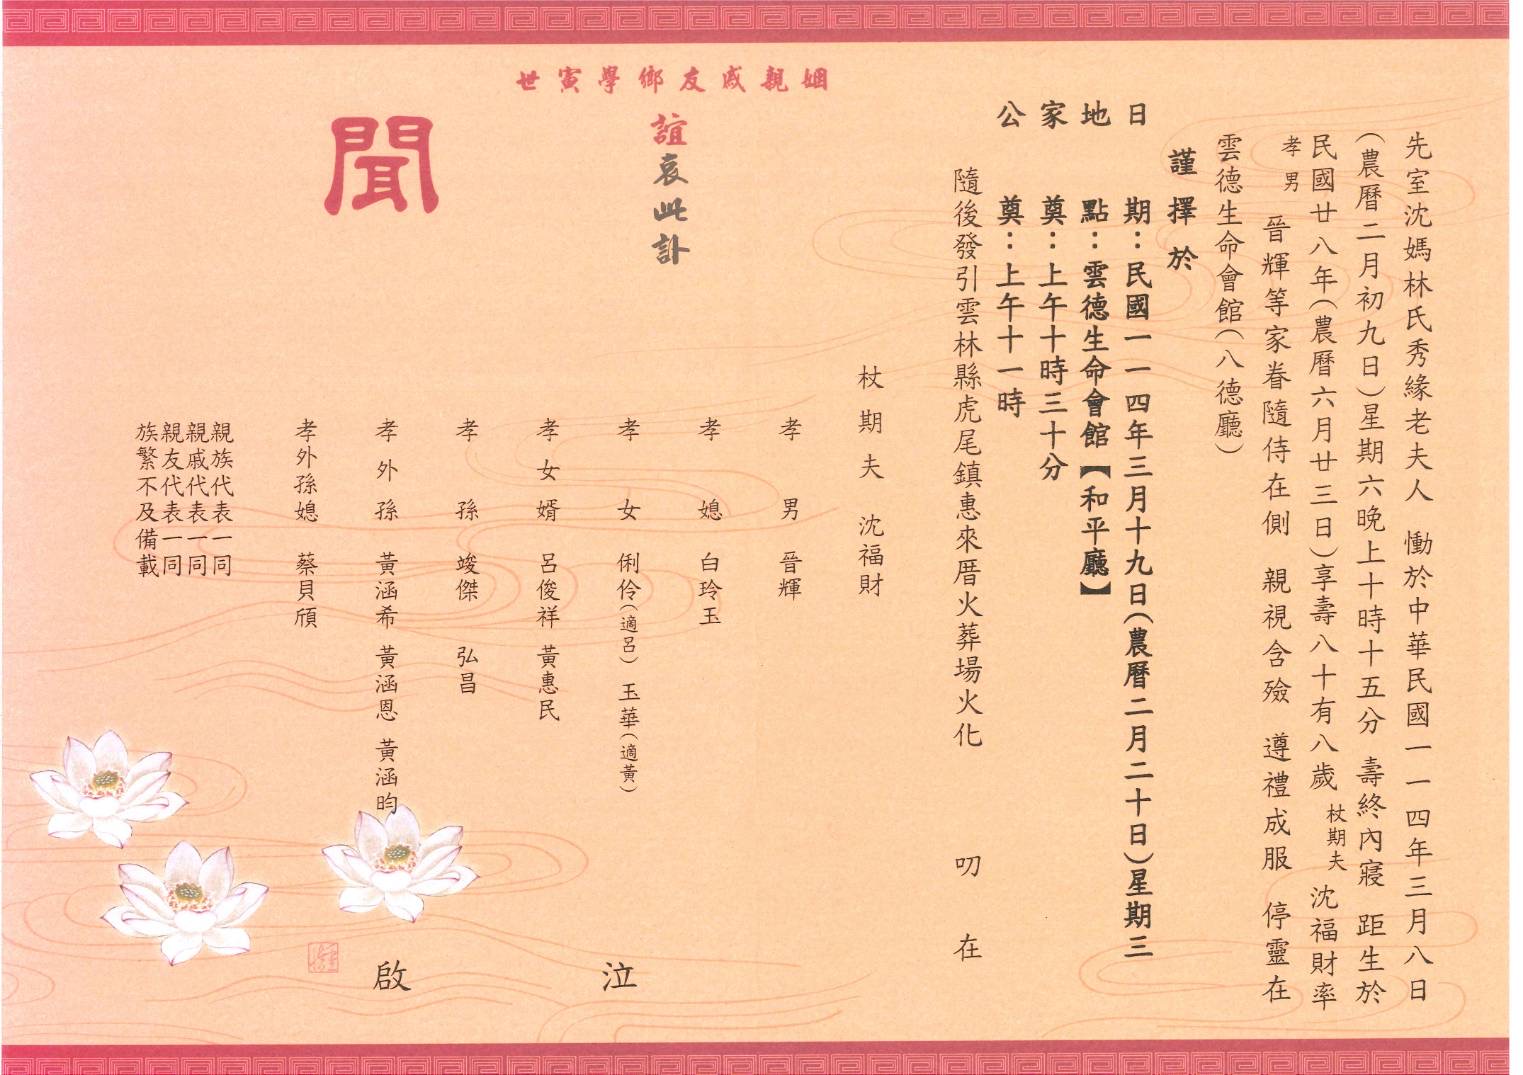 先室沈媽林氏秀緣老夫人 慟於中華民國一一四年三月八日
(農曆二月初九日)星期六晚上十時十五分 壽終內寢 距生於
民國廿八年(農曆六月廿三日)享壽八十有八歲 杖期夫 沈福財率
孝男 晉輝等家眷隨侍在側 親視含殮 遵禮成服 停靈在
雲德生命會館(八德廳)
謹擇於
日期：民國一一四年三月十九日(農曆二月二十日)星期三
地點：雲德生命會館【和平廳】
家奠：上午十時三十分
公奠：上午十一時
隨後發引雲林縣虎尾鎮惠來厝火葬場火化 叨在
姻親戚友鄉學寅世
誼哀此訃
聞
杖期夫 沈福財
孝男 晉輝
孝媳 白玲玉
孝女 俐伶(適呂) 玉華(適黃)
孝女婿 呂俊祥 黃惠民
孝孫 竣傑 弘昌
孝外孫 黃涵希 黃涵恩 黃涵昀
孝外孫媳 蔡貝頎
親族代表一同
親戚代表一同
親友代表一同
族繁不及備載
泣啟